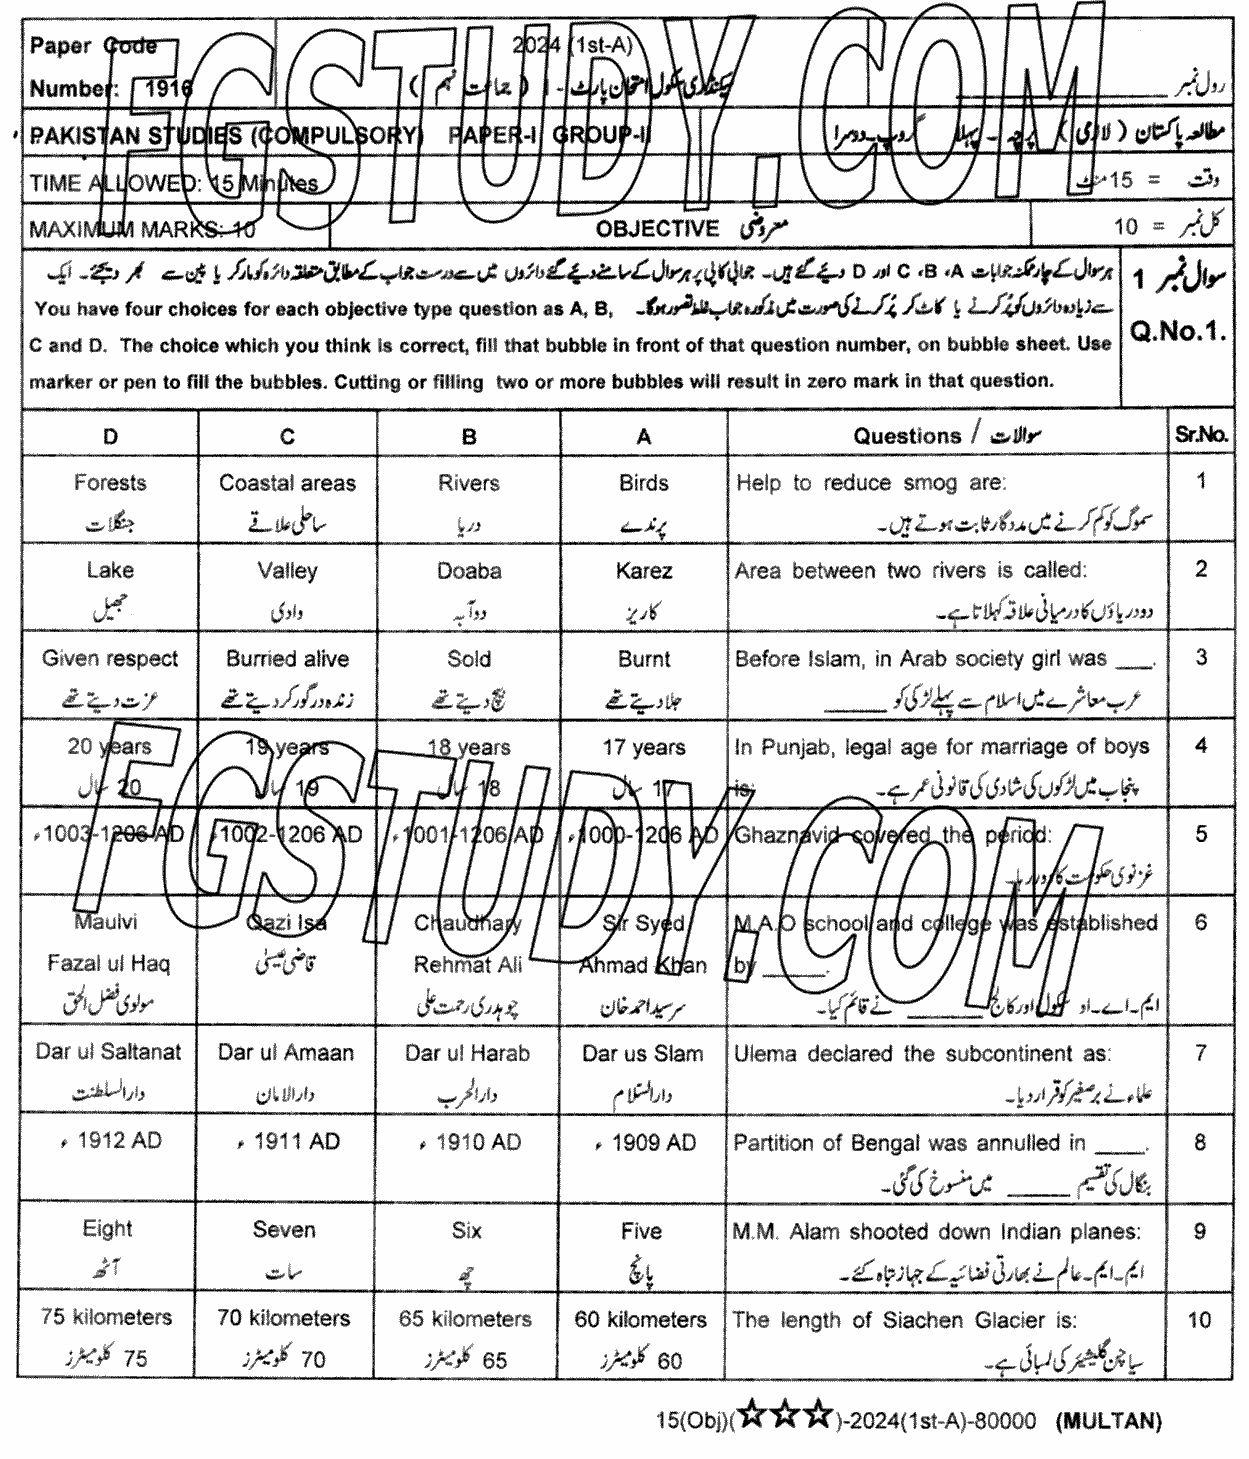 Paper Code
2024 (1st-A)
Number: 1916
سیکنڈری سکول امتحان پارٹ - I ( جماعت نہم )
رول نمبر
PAKISTAN STUDIES (COMPULSORY) PAPER-I GROUP-II
مطالعہ پاکستان ( لازمی ) پرچہ ۔ پہلا گروپ ۔ دوسرا
TIME ALLOWED: 15 Minutes
وقت = 15 منٹ
MAXIMUM MARKS: 10
OBJECTIVE معروضی
کل نمبر = 10
سوال نمبر 1
Q.No.1.
ہر سوال کے چار ممکنہ جوابات A، B، C اور D دیئے گئے ہیں۔ جوابی کاپی پر ہر سوال کے سامنے دیئے گئے دائروں میں سے درست جواب کے مطابق متعلقہ دائرہ کو مارکر یا پین سے بھر دیجئے۔ ایک
سے زیادہ دائروں کو پُر کرنے یا کاٹ کر پُر کرنے کی صورت میں مذکورہ جواب غلط تصور ہوگا۔ You have four choices for each objective type question as A, B,
C and D. The choice which you think is correct, fill that bubble in front of that question number, on bubble sheet. Use
marker or pen to fill the bubbles. Cutting or filling two or more bubbles will result in zero mark in that question.
D C B A Questions / سوالات Sr.No.
Forests Coastal areas Rivers Birds Help to reduce smog are: 1
جنگلات ساحلی علاقے دریا پرندے سموگ کو کم کرنے میں مددگار ثابت ہوتے ہیں۔
Lake Valley Doaba Karez Area between two rivers is called: 2
جھیل وادی دوآبہ کاریز دو دریاؤں کا درمیانی علاقہ کہلاتا ہے۔
Given respect Burried alive Sold Burnt Before Islam, in Arab society girl was ___. 3
عزت دیتے تھے زندہ درگور کر دیتے تھے بیچ دیتے تھے جلا دیتے تھے عرب معاشرے میں اسلام سے پہلے لڑکی کو ____
20 years 19 years 18 years 17 years In Punjab, legal age for marriage of boys 4
20 سال 19 سال 18 سال 17 سال is: پنجاب میں لڑکوں کی شادی کی قانونی عمر ہے۔
ء 1003-1206 AD ء 1002-1206 AD ء 1001-1206 AD ء 1000-1206 AD Ghaznavid covered the period: 5
غزنوی حکومت کا دور رہا۔
Maulvi Qazi Isa Chaudhary Sir Syed M.A.O school and college was established 6
Fazal ul Haq قاضی عیسیٰ Rehmat Ali Ahmad Khan by ____.
مولوی فضل الحق چوہدری رحمت علی سرسید احمد خان ایم۔اے۔او سکول اور کالج ____ نے قائم کیا۔
Dar ul Saltanat Dar ul Amaan Dar ul Harab Dar us Slam Ulema declared the subcontinent as: 7
دارالسلطنت دارالامان دارالحرب دارالسلام علماء نے برصغیر کو قرار دیا۔
ء 1912 AD ء 1911 AD ء 1910 AD ء 1909 AD Partition of Bengal was annulled in ____. 8
بنگال کی تقسیم ____ میں منسوخ کی گئی۔
Eight Seven Six Five M.M. Alam shooted down Indian planes: 9
آٹھ سات چھ پانچ ایم۔ایم۔عالم نے بھارتی فضائیہ کے جہاز تباہ کئے۔
75 kilometers 70 kilometers 65 kilometers 60 kilometers The length of Siachen Glacier is: 10
75 کلومیٹرز 70 کلومیٹرز 65 کلومیٹرز 60 کلومیٹرز سیاچن گلیشیئر کی لمبائی ہے۔
15(Obj)(☆☆☆)-2024(1st-A)-80000 (MULTAN)
FGSTUDY.COM
FGSTUDY.COM